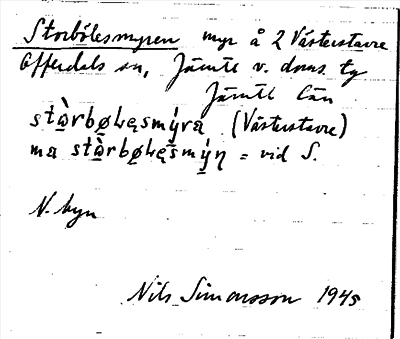 Storbölesmyren myr å 2 Västerstavre
Offerdals sn, Jämtl v. doms tg
Jämtl län
stä̀rbøLęsmýra (Västerstavre)
ma stä̀rbøLęsmýn = vid S.
N. byn
Nils Simonsson 1945